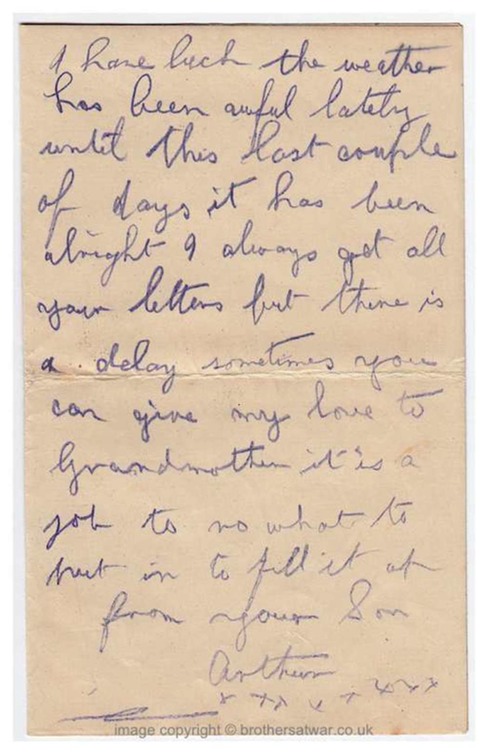 I have luck the weather
has been awful lately
until this last couple
of days it has been
alright I always get all
your letters but there is
a delay sometimes you
can give my love to
Grandmother it is a
job to no what to
put in to fill it up
from your Son
Arthur
x x x x x x x x
image copyright © brothersatwar.co.uk